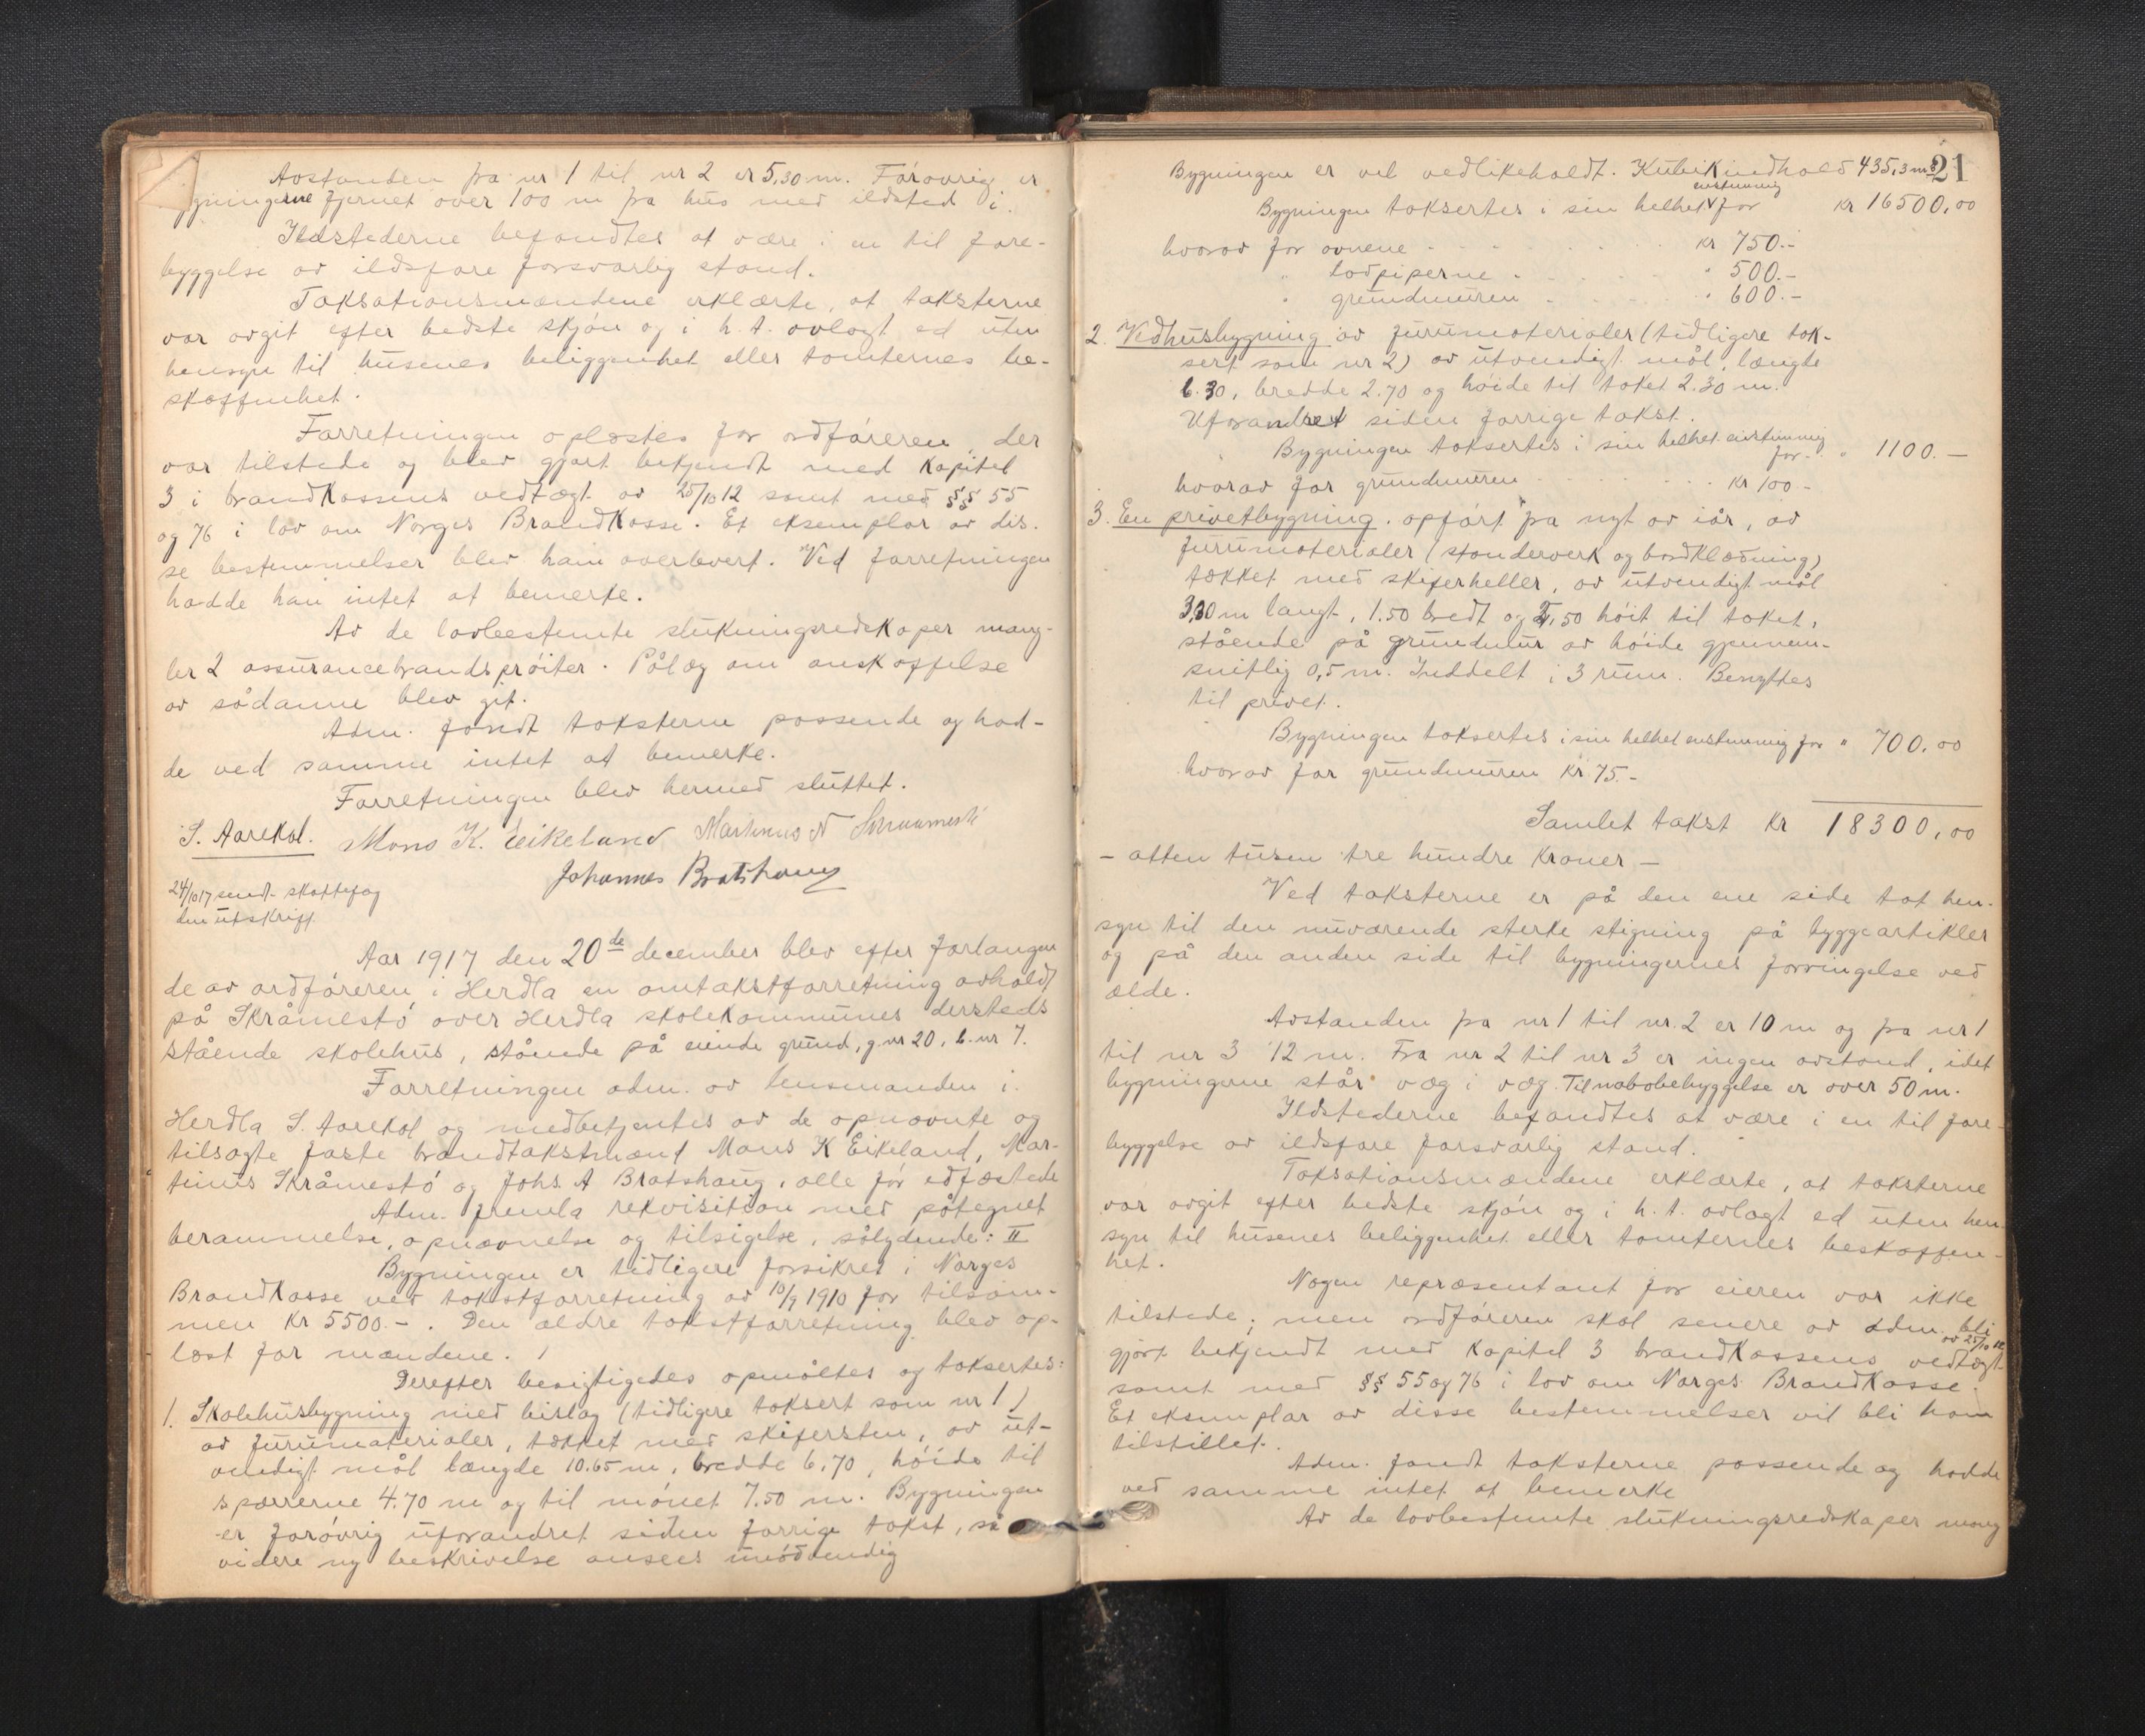 Avstanden fra nr 1 til nr 2 er 5,30 m. Forøvrig er
ygningerne fjernet over 100 m fra hus med ildsted i.
Ildstederne befandtes at være i en til fore-
byggelse av ildsfare forsvarlig stand.
Taksationsmændene erklærte, at taksterne
var avgit efter bedste skjøn og i h. t. avlagt ed uten
hensyn til husenes beliggenhet eller tomternes be-
skaffenhet.
Forretningen oplæstes for ordføreren, der
var tilstede og blev gjort bekjendt med kapitel
3 i brandkassens vedtægt av 25/10 12 samt med §§ 55
og 76 i lov om Norges Brandkasse. Et eksemplar av dis-
se bestemmelser blev ham overlevert. Ved forretningen
hadde han intet at bemerke.
Av de lovbestemte slukningsredskaper mang-
ler 2 assurancebrandsprøiter. Pålæg om anskaffelse
av sådanne blev git.
Adm. fandt taksterne passende og had-
de ved samme intet at bemerke.
Forretningen blev hermed sluttet.
S. Aarekol. Mons K. Eikeland Martinus N Skraamestø
Johannes Bratshaug
24/10 17 sendt skattefog
den utskrift
Aar 1917 den 20de december blev efter forlangen
de av ordføreren i Herdla en omtakstforretning avholdt
på Skråmestø over Herdla skolekommunes dersteds
stående skolehus, stående på eiende grund, g.nr 20, b.nr 7.
Forretningen adm. av lensmanden i
Herdla S. Aarekol og medbetjentes av de opnævnte og
tilsagte faste brandtakstmænd Mons K Eikeland, Mar-
tinus Skråmestø og Johs. A Bratshaug, alle før edfæstede
Adm. fremla rekvisition med påtegnet
berammelse, opnævnelse og tilsigelse, sålydende: II
Bygningen er tidligere forsikret i Norges
Brandkasse ved takstforretning av 10/9 1910 for tilsam-
men kr 5500.-. Den ældre takstforretning blev op-
læst for mændene.
Derefter besigtigedes opmåltes og taksertes:
1. Skolehusbygning med bislag (tidligere taksert som nr 1)
av furumaterialer, tækket med skifersten, av ut-
vendigt mål længde 10.65 m, bredde 6.70, høide til
sparrerne 4.70 m og til mønet 7.50 m. Bygningen
er forøvrig uforandret siden forrige takst, så
videre ny beskrivelse ansees unødvendig
21
Bygningen er vel vedlikeholdt. Kubikindhold 435,3 m3
Bygningen taksertes i sin helhet enstemmig for kr 16500,00
hvorav for ovnene kr 750.-
" lodpiperne " 500.-
" grundmuren " 600.-
2. Vedhusbygning av furumaterialer (tidligere tak-
sert som nr 2) av utvendigt mål, længde
6.30, bredde 2.70 og høide til taket 2.30 m.
Uforandret siden forrige takst.
Bygningen taksertes i sin helhet enstemmig for " 1100.-
hvorav for grundmuren kr 100.-
3. En privetbygning, opført pa nyt av iår, av
furumaterialer (stenderverk og bordklædning)
tækket med skiferheller, av utvendigt mål
3,30 m langt, 1.50 bredt og 2,50 høit til taket,
stående på grundmur av høide gjennem-
snitlig 0,5 m. Inddelt i 3 rum. Benyttes
til privet.
Bygningen taksertes i sin helhet enstemmig for " 700,00
hvorav for grundmuren kr 75.-
Samlet takst kr 18300,00
- atten tusen tre hundre kroner -
Ved taksterne er på den ene side tat hen-
syn til den nuværende sterke stigning på byggeartikler
og på den anden side til bygningernes forringelse ved
ælde.
Avstanden fra nr 1 til nr. 2 er 10 m og fra nr 1
til nr 3 12 m. Fra nr 2 til nr 3 er ingen avstand, idet
bygningerne står væg i væg. Til nabobebyggelse er over 50 m.
Ildstederne befandtes at være i en til fore-
byggelse av ildsfare forsvarlig stand.
Taksationsmændene erklærte, at taksterne
var avgit efter bedste skjøn og i h. t. avlagt ed uten hen-
syn til husenes beliggenhet eller tomternes beskaffen-
het.
Nogen repræsentant for eieren var ikke
tilstede; men ordføreren skal senere av adm. bli
gjort bekjendt med kapitel 3 brandkassens vedtægt av 25/10 12
samt med §§ 55 og 76 i lov om Norges Brandkasse.
Et eksemplar av disse bestemmelser vil bli ham
tilstillet.
Adm. fandt taksterne passende og hadde
ved samme intet at bemerke
Av de lovbestemte slukningsredskaper mang